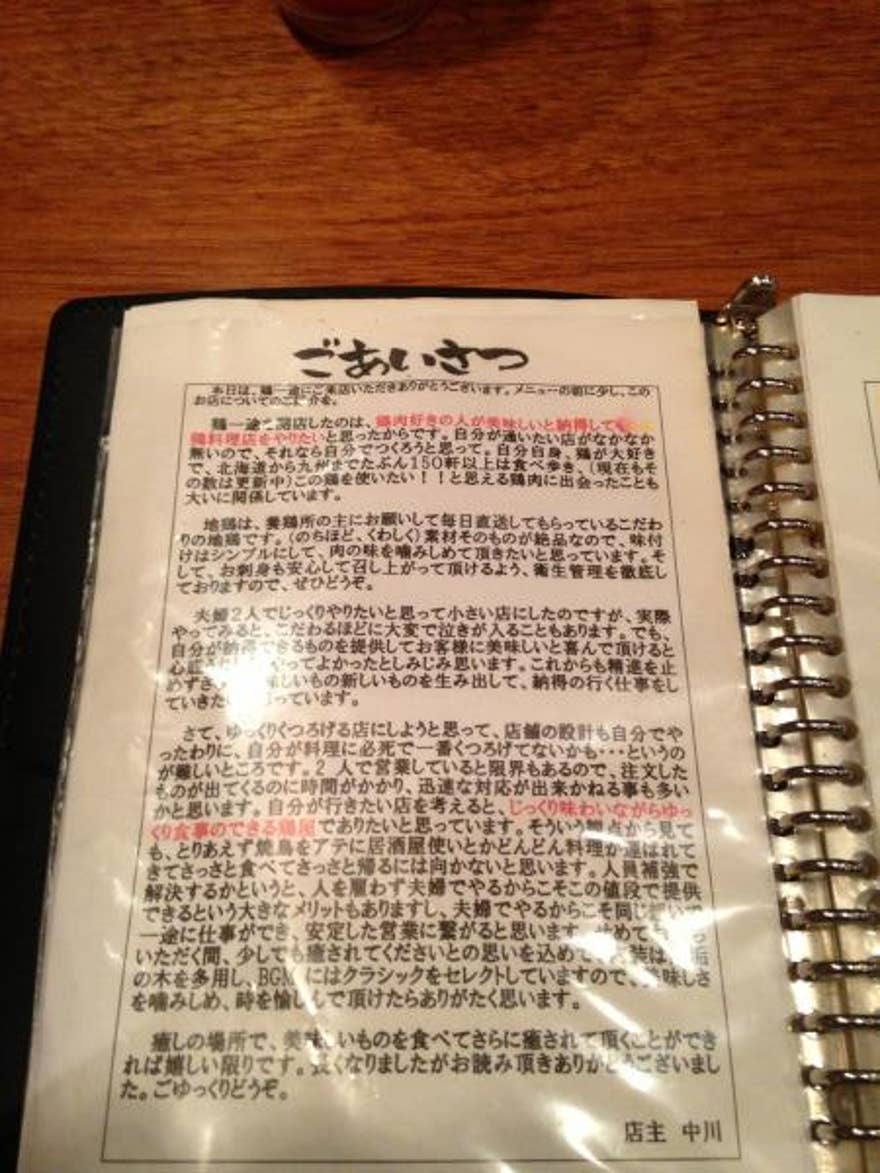 ごあいさつ
本日は、鶏一途にご来店いただきありがとうございます。メニューの前に少し、この
お店についてのご 介を。
鶏一途 開店したのは、鶏肉好きの人が美味しいと納得して
鶏料理店をやりたいと思ったからです。自分が通いたい店がなかなか
無いので、それなら自分でつくろうと思って。自分自身、鶏が大好き
で、北海道から九州までたぶん150軒以上は食べ歩き、(現在もそ
の数は更新中)この鶏を使いたい！！と思える鶏肉に出会ったことも
大いに関係しています。
地鶏は、養鶏所の主にお願いして毎日直送してもらっているこだわ
りの地鶏です。(のちほど、くわしく)素材そのものが絶品なので、味付
けはシンプルにして、肉の味を噛みしめて頂きたいと思っています。そ
して、お刺身も安心して召し上がって頂けるよう、衛生管理を徹底し
ておりますので、ぜひどうぞ。
夫婦2人でじっくりやりたいと思って小さい店にしたのですが、実際
やってみると、こだわるほどに大変で泣きが入ることもあります。でも、
自分が納得できるものを提供してお客様に美味しいと喜んで頂けると
心 やってよかったとしみじみ思います。これからも精進を止
めずさ しいもの新しいものを生み出して、納得の行く仕事をし
ていきた っています。
さて、ゆっくりくつろげる店にしようと思って、店舗の設計も自分でや
ったわりに、自分が料理に必死で一番くつろげてないかも・・・というの
が難しいところです。2 人で営業していると限界もあるので、注文した
ものが出てくるのに時間がかかり、迅速な対応が出来かねる事も多い
かと思います。自分が行きたい店を考えると、じっくり味わいながらゆっ
くり食事のできる鶏屋でありたいと思っています。そういう観点から見て
も、とりあえず焼鳥をアテに居酒屋使いとかどんどん料理が運ばれて
きてさっさと食べてさっさと帰るには向かないと思います。人員補強で
解決するかというと、人を雇わず夫婦でやるからこそこの値段で提供
できるという大きなメリットもありますし、夫婦でやるからこそ同じ想いで
一途に仕事ができ、安定した営業に繋がると思います。せめて
いただく間、少しでも癒されてくださいとの思いを込めて、 装は
の木を多用し、BGMにはクラシックをセレクトしていますので、美味しさ
を噛みしめ、時を愉しんで頂けたらありがたく思います。
癒しの場所で、美味しいものを食べてさらに癒されて頂くことができ
れば嬉しい限りです。長くなりましたがお読み頂きありがとうございまし
た。ごゆっくりどうぞ。
店主 中川